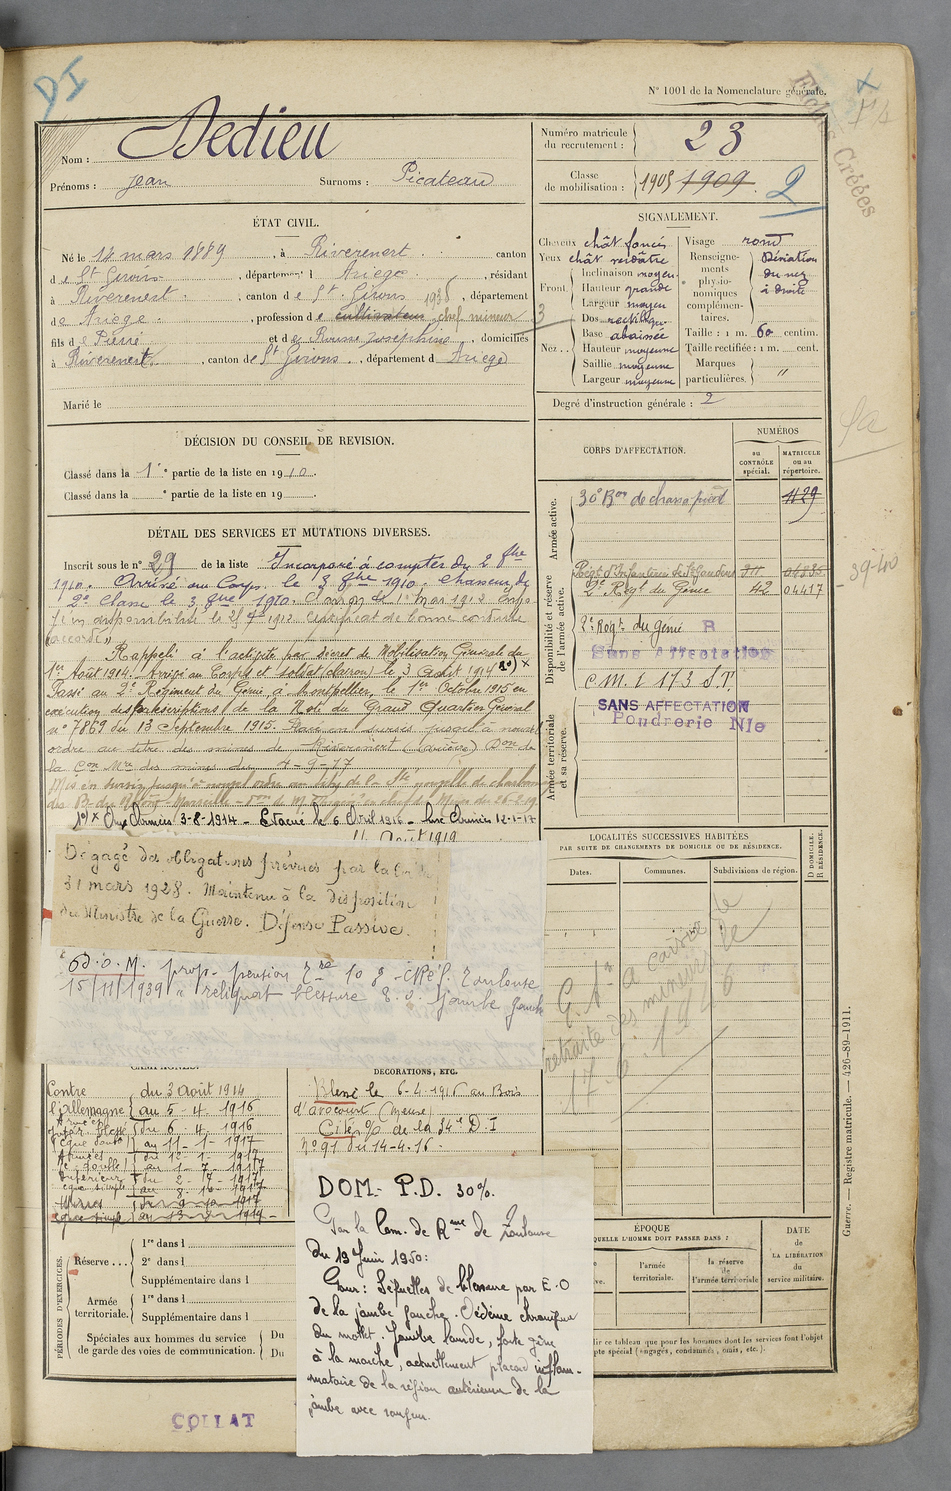 DI
N° 1001 de la Nomenclature générale.
Fiches Créées
Nom : Dedieu
Prénoms : Jean Surnoms : Picateau
Numéro matricule du recrutement : 23
Classe de mobilisation : 1905 1909 2
ÉTAT CIVIL.
Né le 14 mars 1889, à Riverenert canton
de St Girons, département Ariège, résidant
à Riverenert, canton de St. Girons 1938, département
de Ariège, profession de cultivateur chef mineur
fils de Pierre et de Rousse Joséphine, domiciliés
à Riverenert, canton de St Girons, département d Ariège
Marié le
SIGNALEMENT.
Cheveux chât foncés
Yeux chât verdâtre
Front. Inclinaison moyen
Hauteur grande
Largeur moyen
Nez .. Dos rectiligne
Base abaissée
Hauteur moyenne
Saillie moyenne
Largeur moyenne
3
Visage rond
Renseignements physionomiques complémentaires. Déviation du nez à droite
Taille : 1 m. 60 centim.
Taille rectifiée : 1 m. cent.
Marques particulières. "
Degré d'instruction générale : 2
DÉCISION DU CONSEIL DE REVISION.
Classé dans la 1e partie de la liste en 1910.
Classé dans la partie de la liste en 19
DÉTAIL DES SERVICES ET MUTATIONS DIVERSES.
Inscrit sous le n° 29 de la liste Incorporé à compter du 2 8bre
1910. Arrivé au Corps le 3 8bre 1910. Chasseur de
2e classe le 3 8bre 1910. Clairon le 1er Mai 1912
en disponibilité le 25 1912 Certificat de bonne conduite
accordé"
Rappelé à l'activité par décret de Mobilisation Générale du
1er Août 1914. Arrivé au Corps et soldat (clairon) le 3 Août 1914 1°) x
Passé au 2e Régiment du Génie, à Montpellier, le 1er Octobre 1915 en
exécution des prescriptions de la Note du Grand Quartier Général
n° 7869 du 13 Septembre 1915. Placé en sursis jusqu'à nouvel
ordre au titre des mines de Riverenert (Ariège) Don de
la Con Mre des mines du 4-9-17
Mis en sursis jusqu'à nouvel ordre de la Sté nouvelle de charbon
des B. du Rhône Marseille
1°) x Aux Armées 3-8-1914 - Evacué le 6 Avril 1916 - Aux Armées 12-1-17
11 Août 1919
Dégagé des obligations prévues par la loi
31 mars 1928. Maintenu à la disposition
du Ministre de la Guerre. Défense Passive.
D.O.M. prop. pension 10 % Toulouse
15/11/1939 " reliquat blessure jambe gauche
CORPS D'AFFECTATION.
NUMÉROS
au CONTRÔLE spécial.
MATRICULE ou au répertoire.
Armée active.
30e Bon de chass. à pied 1129
Disponibilité et réserve de l'armée active.
Régt d'Infanterie de St Gaudens 711 04835
2e Régt du Génie 42 04417
2e Régt du Génie B
Sans Affectation
C.M.I 173 S.T.
SANS AFFECTATION
Poudrerie Nle
Armée territoriale et sa réserve.
39-40
LOCALITÉS SUCCESSIVES HABITÉES
PAR SUITE DE CHANGEMENTS DE DOMICILE OU DE RÉSIDENCE.
Dates.
Communes.
Subdivisions de région.
D DOMICILE.
R RÉSIDENCE.
caisse de
retraite des mineurs
17-6-1946
CAMPAGNES.
Contre l'Allemagne
du 3 Août 1914
au 5 - 4 - 1916
du 6 - 4 - 1916
au 11 - 1 - 1917
du 12 - 1 - 1917
au 1 - 7 - 1917
Intérieur du 2 - 7 - 1917
au 8 - 10 - 1917
DÉCORATIONS, ETC.
Blessé le 6-4-1916 au Bois
d'avocourt (Meuse)
Cité % de la 34e D.I
n° 91 du 14-4-16.
DOM.- P.D. 30%.
Par la Com. de Rme de Toulouse
du 19 Juin 1950:
Pour : Séquelles de blessure par E.O
de la jambe gauche. Oedème chronique
du mollet. Jambe lourde, forte gêne
à la marche, actuellement placard inflam-
matoire de la région antérieure de la
jambe avec rougeur.
PÉRIODES D'EXERCICES.
Réserve... 1re dans l
2e dans l
Supplémentaire dans l
Armée territoriale. 1re dans l
Supplémentaire dans l
Spéciales aux hommes du service de garde des voies de communication. Du
Du
ÉPOQUE
QUELLE L'HOMME DOIT PASSER DANS :
l'armée territoriale.
la réserve de l'armée territoriale
DATE de LA LIBÉRATION du service militaire.
lir ce tableau que pour les hommes dont les services font l'objet
pte spécial (engagés, condamnés, omis, etc.).
Guerre. — Registre matricule. — 426-89-1911.
COLLAT